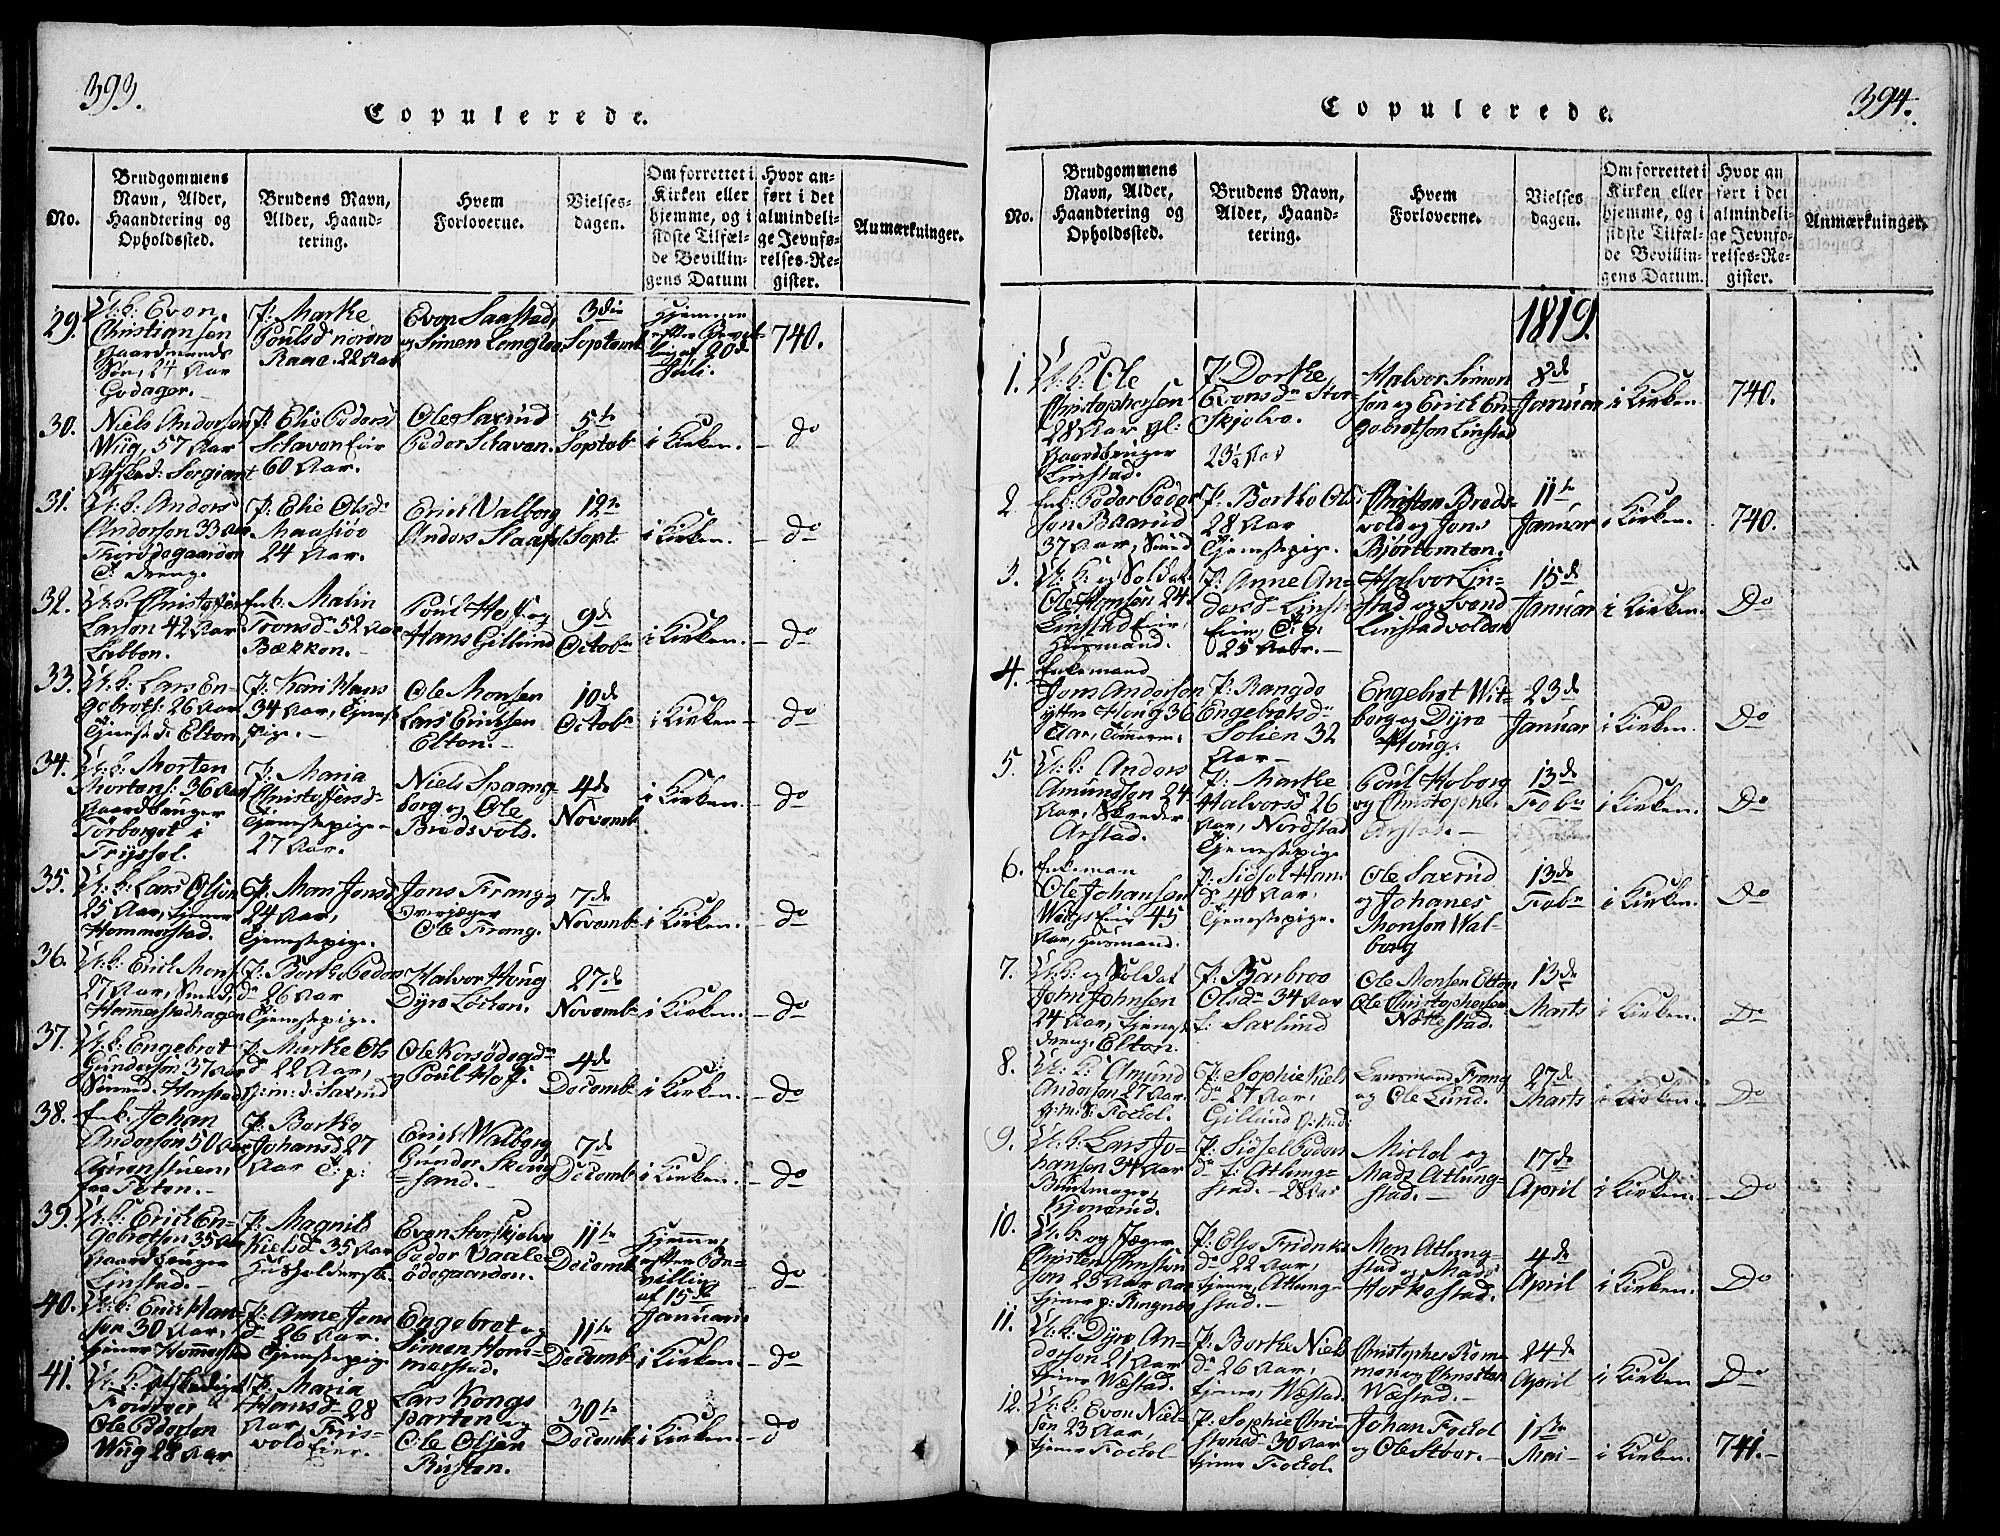 393.
Copulerede.
No.
Brudgommens
Navn, Alder,
Haandtering og
Opholdssted.
Brudens Navn,
Alder, Haand-
tering.
Hvem
Forloverne.
Vielses-
dagen.
Om forrettet i
Kirken eller
hjemme, og i
sidste Tilfæl-
de Bevillin-
gens Datum
Hvor an-
ført i det
almindeli-
ge Jevnfø-
relses-Re-
gister.
Anmærkninger.
29.
U: k: Even
Christiansen
Gaardmands
Søn, 24 Aar
Godager.
P: Marthe
Poulsd nordre
Raae. 22 Aar
Even Saastad,
og Simen
3die
Septemb
Hjemme
efter Bevil-
ling af 20de
Juli.
740.
30.
Niels Andersen
Wiig, 57 Aar
Afsked: Sergiant
P: Elie Peders
Stavon Eier
60 Aar.
Ole Saxrud
Peder Stavon.
5te
Septebr
i Kirken.
do
31.
U: k: Anders
Andersen 33 Aar
P: Elie Olsd
24 Aar.
Erick Valborg
Anders
12te
Sept.
i Kirken.
do
32.
U: k: Christoffer
Larsen 42 Aar
Enk: Malin
Tronsd 52 Aar
Bækken.
Poul Hoff og
Hans Gillund
9de
Octobr
i Kirken.
do
33.
U: k: Lars En-
gebrets: 26 Aar
Tjenst: d: Elton
P: Kari Hans
34 Aar, Tjenst
Pige.
Ole Monsen
Lars Ericksen
Elton.
10de
Octobr
i Kirken
do
34.
U: k: Morten
Mortens: 36 Aar
Gaardbruger
Torberget i
Tryssel.
P: Maria
Christoffersd
Tjenestepige
27 Aar.
Niels Spaang-
berg og Ole
Bredsvold.
4de
Novemb
i Kirken.
do
35.
U: k: Lars Olsen
25 Aar, tjener
Hommerstad.
P: Mari Jensd
24 Aar,
Tjenestepige.
Jens Frang
Overjæger
Ole Frang.
7de
Novemb
i Kirken.
do
36.
U: k: Erick Mons
27 Aar, Smed,
Hommerstadhagen
P: Berthe Peders
d 26 Aar
Tjenestepige.
Halvor Houg
Dyre Løken.
27de
Novemb
i Kirken.
do
37.
U: k: Engebret
Gunderson 37 Aar
Smed. Harstad
P: Marthe Ols
d 22 Aar,
G: m: d: Saxrud
Ole Korsødegd
og Poul Hoff.
4de
Decemb
i Kirken.
do
38.
Enk: Johan
Andersen 50 Aar
fra Teten.
P: Berthe
Johansd 27
Aar T: p:
Erick Walborg
Gunder Skong
sand.
7de
Decemb
i Kirken.
do
39.
U: k: Erick En-
gebretsen 35 Aar
Gaardbruger
Linstad.
P: Magnild
Kielsd 35 Aar
Husholderske
Even Storskjelve
Peder Vaale-
ødegaarden.
11te
Decemb
Hjemme,
efter Be-
villing
af 15de
Januari
do
40.
U: k: Erick Han-
sen 30 Aar,
tjener Hommerstad
P: Anne Jens
d 26 Aar.
Tjenestepige
Engebret og
Simen Hom-
merstad.
11te
Decemb
i Kirken.
do
41.
U: k: afskediget
Ole Pedersen
Wiig 28 Aar
P: Maria
Hansd 28
Aar, Fris-
vold Eier.
Lars Kongs
parten og
Ole Olsen
Rusten.
30te
Decemb
i Kirken.
do
394.
Copulerede.
No.
Brudgommens
Navn, Alder,
Haandtering og
Opholdssted.
Brudens Navn,
Alder, Haand-
tering.
Hvem
Forloverne.
Vielses
dagen.
Om forrettet i
Kirken eller
hjemme, og i
sidste Tilfæl-
de Bevillin-
gens Datum.
Hvor an
ført i det
almindeli-
ge Jevnfø-
relses-Re-
gister.
Anmærkninger.
1819.
1.
U: k: Ole
Christophersen
28 Aar gl:
Gaardbruger
Linstad.
P: Dorthe
Evensd Stor
Skjelve.
23½ Aar
Halvor Simen
sen og Erick En
gebretsen Linstad
8de
Januar
i Kirken.
740.
2
Enk: Peder Peder
sen Baarud
37 Aar, Smed
P: Berthe Ols
28 Aar
Tjenestepige.
Christen Breds-
vold og Jens
Bjertomten.
11te
Januar
i Kirken.
740.
3.
U: k: og Soldat
Ole Hansen 24
Linstad Eier,
Husmand.
P: Anne An-
dersd Linst
Eier, T: p:
25 Aar.
Halvor Lin-
stad og Svend
Linstadvolden
15de
Januar
i Kirken.
Do
4.
Enkemand
Jens Andersen
yttre Houg 36
Aar,
P: Rangdo
Engebretsd
Solien 32
Aar
Engebret Wit-
berg og Dyre
Houg.
23de
Januar
i Kirken.
Do
5.
U: k: Anders
Amundsen 24
Aar,
Arstad.
P: Marthe
Halvorsd 26
Aar, Nordstad
Tjenestepige
Poul Hoberg
og Christophe.
Arstad.
13de
Febr
i Kirken.
Do
6.
Enkeman
Ole Johansen
Wiigs Eier 45
Aar, Husmand.
P: Sidsel Han
d 40 Aar,
Tjenestepige.
Ole Saxrud
og Johanes
Monsen Wal-
borg
13de
Febr
i Kirken.
Do
7.
U: k: og Soldat
John Johnsen
24 Aar, tjenest
dreng, Elton.
P: Barbroe
Olsd 34 Aar
f: Saxlund
Ole Monsen Elton
Ole Christophersen
Nottestad.
13de
Marts
i Kirken.
Do
8.
U: k: Amund
Andersen 27 Aar
P: Sophie Niels
d 27 Aar,
Gillund
Lensmand Frang
og Ole Lund.
27de
Marts
i Kirken.
Do
9.
U: k: Lars Jo-
hansen 34 Aar
P: Sidsel Peders
d f: Atlung-
stad. 28 Aar
Mickel og
Mads Atlung-
stad.
17de
April
i Kirken.
Do
10.
U: k: og Jæger
Christen Christen
sen 25 Aar
tjener p: Ringnes
P: Else Fridriks
d 22 Aar,
tjener Atlung-
stad.
Mon Atlung-
stad og Mads
Horkestad.
4de
April
i Kirken.
Do
11.
U: k: Dyre An-
dersen 21 Aar
tjener Wæstad.
P: Berthe Niels
d 26 Aar,
tjener, Wæstad.
Christopher Rom-
men og Christian
Wæstad.
24de
April
i Kirken.
Do
12.
U: k: Even Niel-
sen 23 Aar,
tjener Fockel
P: Sophie Chri-
stensd 30 Aar
tjener Fockel.
Johan Fockel
og Ole Stoer.
1ste
Mai
i Kirken.
741.